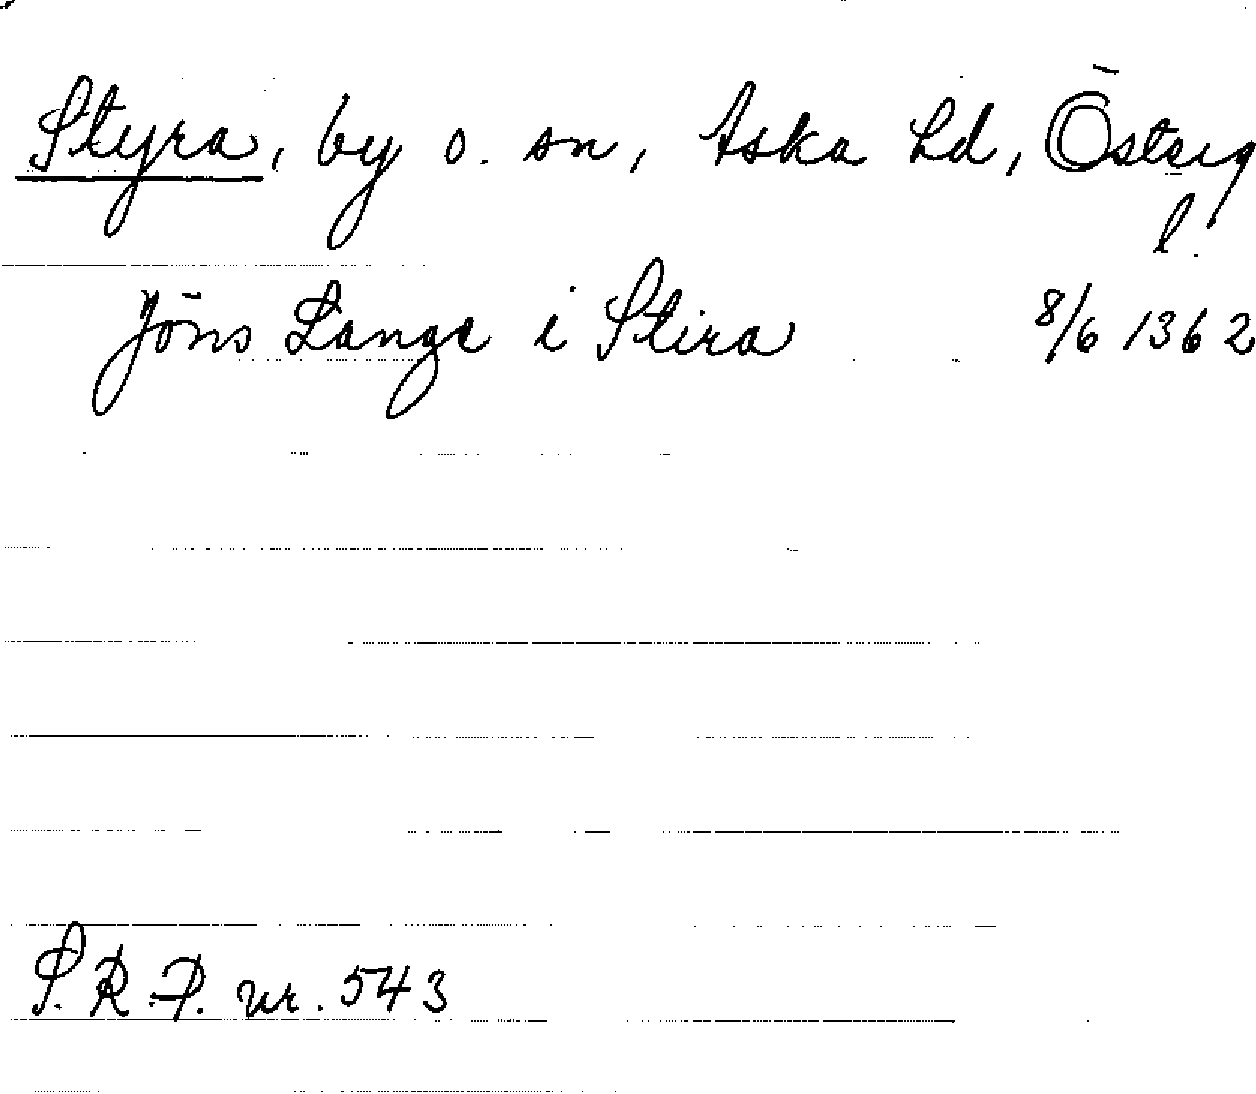 Styra, by o. sn, Aska hd, Östergl.
Jöns Lange i Stira 8/6 1362
S.R.P. nr. 543